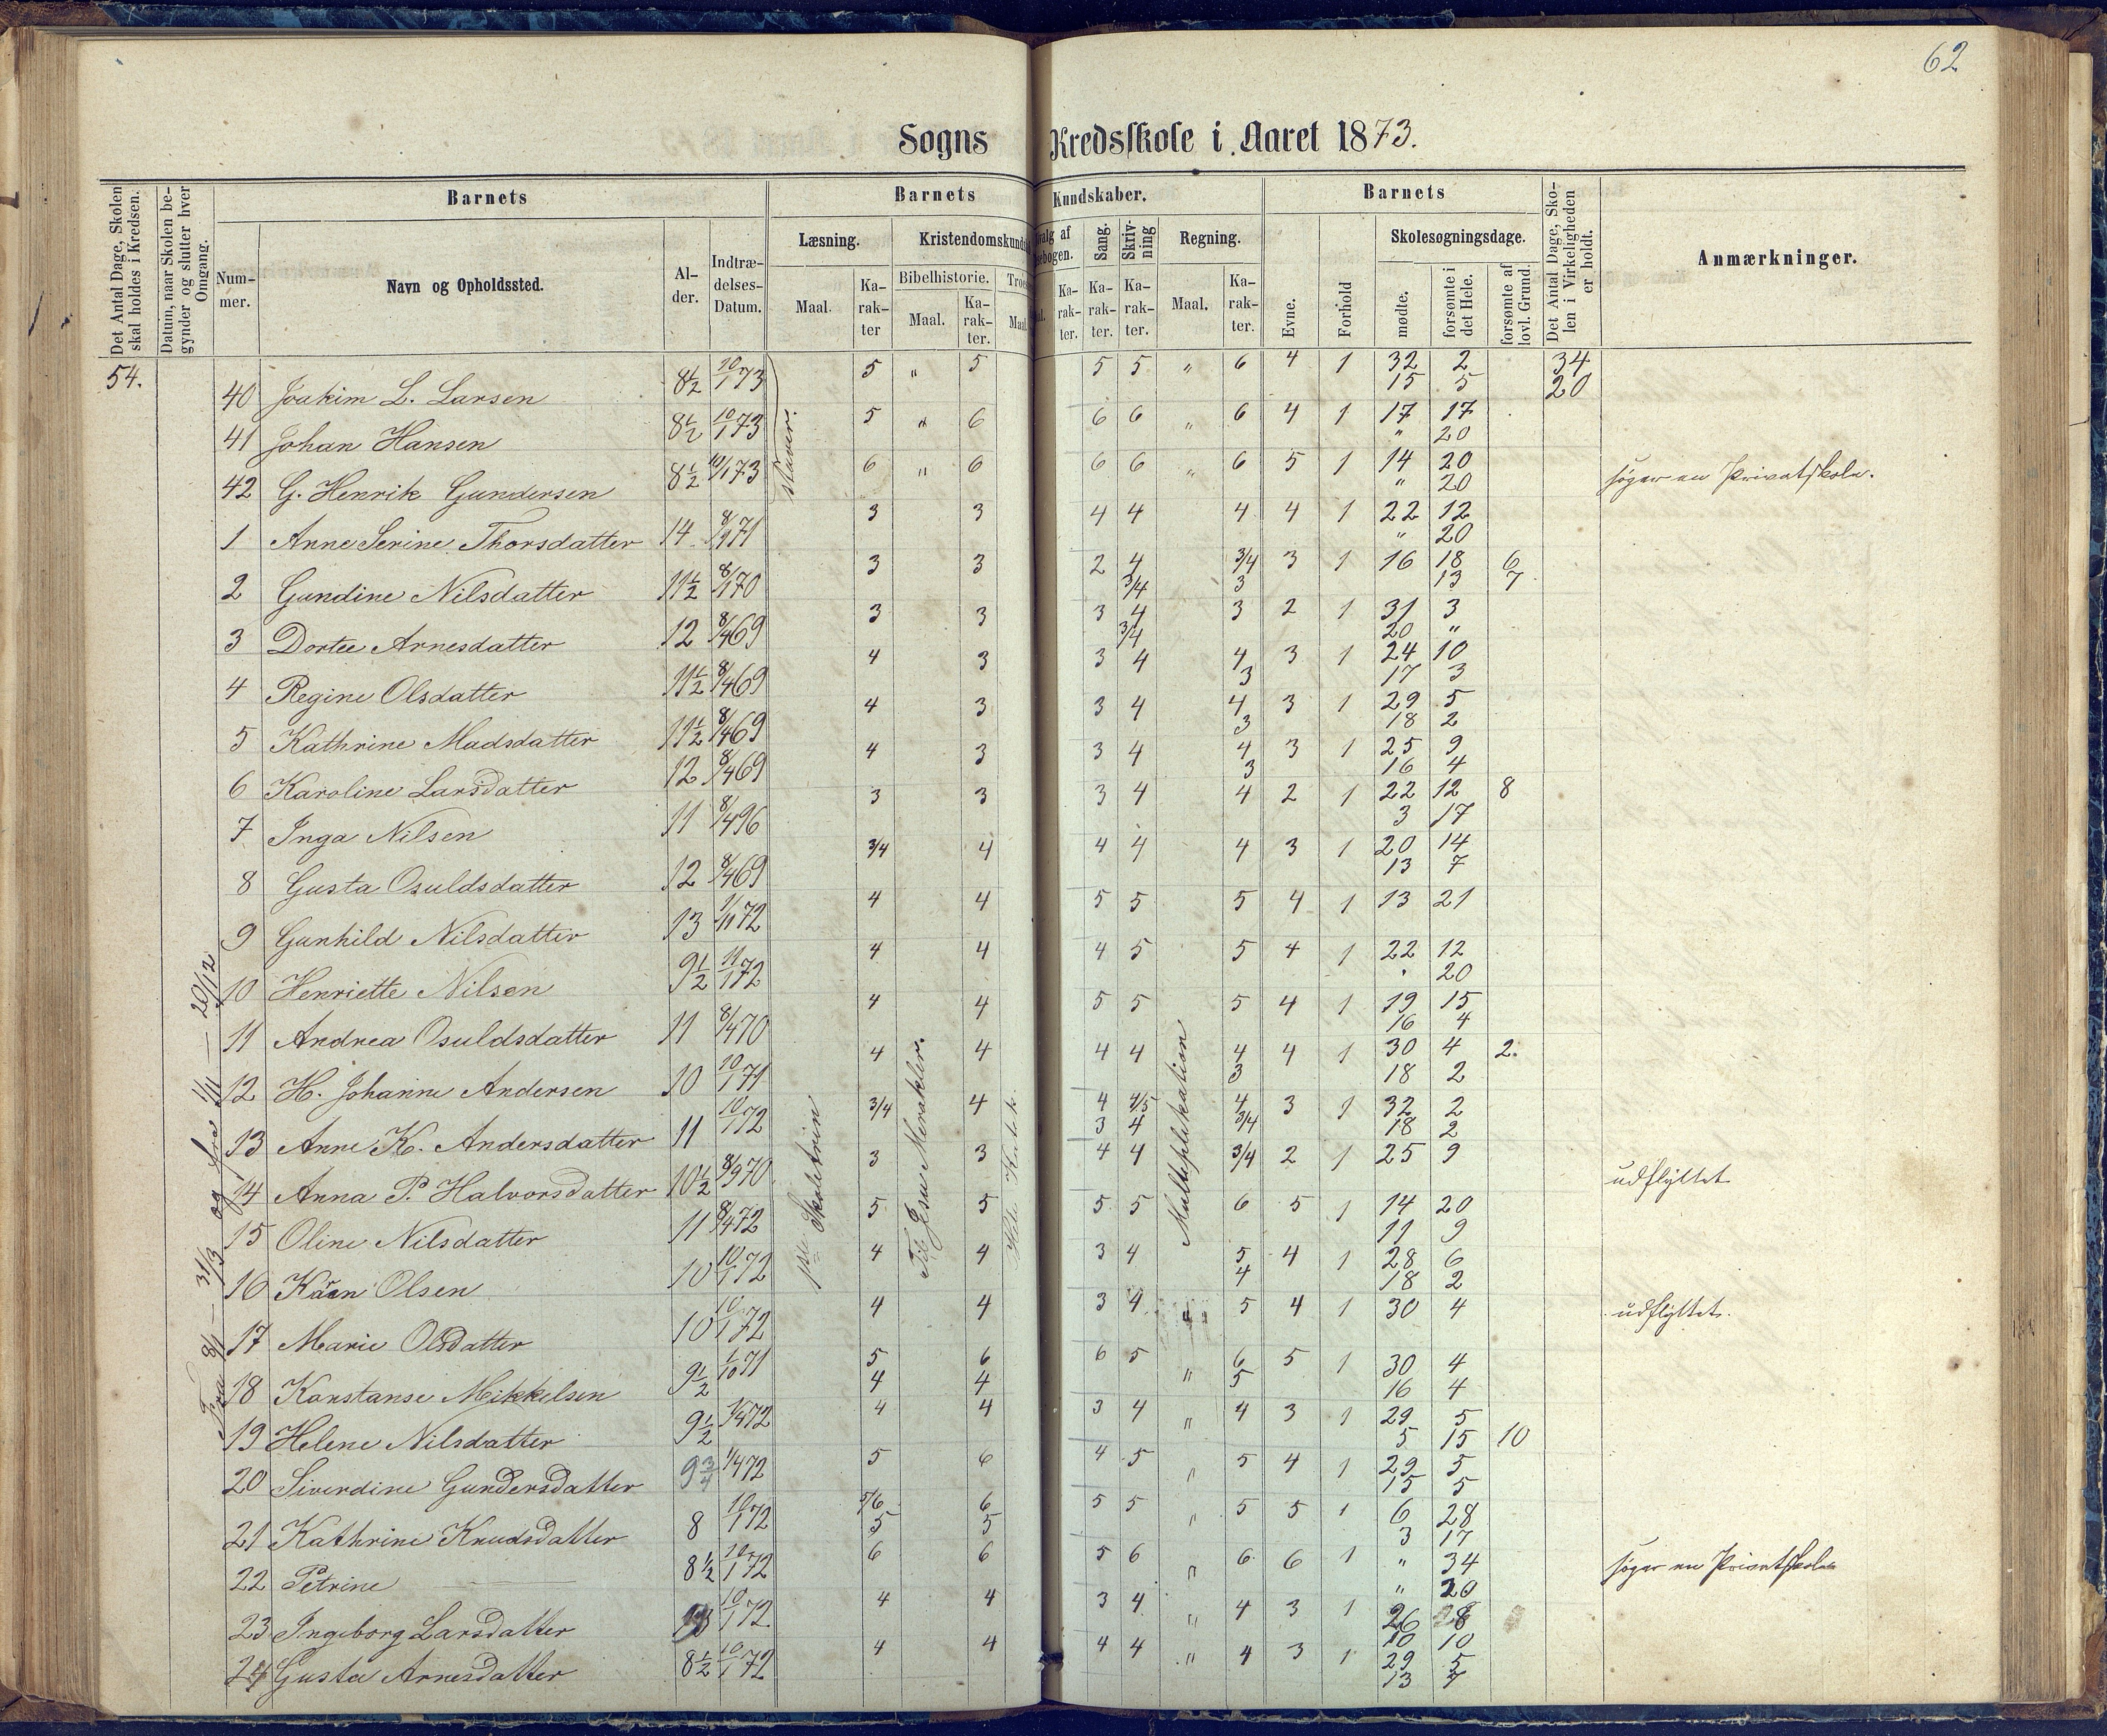 62
Sogns Kredsskole i Aaret 1873.
Det Antal Dage, Skolen skal holdes i Kredsen.
Datum, naar Skolen begynder og slutter hver Omgang.
Barnets
Nummer.
Navn og Opholdssted.
Alder.
Indtrædelses-Datum.
Barnets Kundskaber.
Læsning.
Maal.
Karakter
Kristendomskunds
Bibelhistorie.
Maal.
Karakter.
Troes
Maal
valg af
sebogen.
al.
Karakter.
Sang.
Karakter.
Skrivning
Karakter.
Regning.
Maal.
Karakter.
Barnets
Evne.
Forhold
Skolesøgningsdage.
mødte.
forsømte i det Hele.
forsømte af lovl. Grund.
Det Antal Dage, Skolen i Virkeligheden er holdt.
Anmærkninger.
54.
Fra 8/1 — 31/3 og fra 1/11 — 20/12
staver.
1ste Skoletrin
Til Jesu Mirakler.
Multiplikation
40 Joakim L. Larsen 8½ 10/1 73 5 " 5 5 5 " 6 4 1 32 2 34
15 5 20
41 Johan Hansen 8½ 10/1 73 5 " 6 6 6 " 6 4 1 17 17
" 20
42 G. Henrik Gundersen 8½ 10/1 73 6 " 6 6 6 " 6 5 1 14 20 søger en Privatskole.
" 20
1 Anne Serine Thorsdatter 14 8/9 71 3 3 4 4 4 4 1 22 12
" 20
2 Gundine Nilsdatter 11½ 8/1 70 3 3 2 4 3/4 3 1 16 18 6
3/4 3 13 7
3 Dortee Arnesdatter 12 8/4 69 3 3 3 4 3 2 1 31 3
3/4 20 "
4 Regine Olsdatter 11½ 8/4 69 4 3 3 4 4 3 1 24 10
3 17 3
5 Kathrine Madsdatter 11½ 8/4 69 4 3 3 4 4 3 1 29 5
3 18 2
6 Karoline Larsdatter 12 8/4 69 4 3 3 4 4 3 1 25 9
3 16 4
7 Inga Nilsen 11 8/4 96 3 3 3 4 4 2 1 22 12 8
3 17
8 Gusta Osuldsdatter 12 8/4 69 3/4 4 4 4 4 3 1 20 14
13 7
9 Gunhild Nilsdatter 13 1/11 72 4 4 5 5 5 4 1 13 21
10 Henriette Nilsen 9½ 11/1 72 4 4 4 5 5 4 1 22 12
" 20
11 Andrea Osuldsdatter 11 8/4 70 4 4 5 5 5 4 1 19 15
16 4
12 H. Johanne Andersen 10 10/1 71 4 4 4 4 4 4 1 30 4 2.
3 18 2
13 Anne K. Andersdatter 11 10/1 72 3/4 4 4 4/5 4 3 1 32 2
3 4 3/4 18 2
14 Anna P. Halvorsdatter 10½ 8/9 70 3 3 4 4 3/4 2 1 25 9 udflyttet
15 Oline Nilsdatter 11 8/4 72 5 5 5 5 6 5 1 14 20
11 9
16 Karen Olsen 10 10/1 72 4 4 3 4 5 4 1 28 6
4 18 2
17 Marie Olsdatter 10 10/1 72 4 4 3 4 " 5 4 1 30 4 udflyttet.
18 Konstanse Mikkelsen 9½ 1/10 71 5 6 6 5 " 6 5 1 30 4
4 4 5 16 4
19 Helene Nilsdatter 9½ 1/4 72 4 4 3 4 " 4 3 1 29 5
5 15 10
20 Siverdine Gundersdatter 9¾ 1/4 72 5 6 4 5 " 5 4 1 29 5
15 5
21 Kathrine Knudsdatter 8 10/1 72 5/6 6 5 5 " 5 5 1 6 28
5 5 3 17
22 Petrine — 8½ 10/1 72 6 6 5 6 " 6 6 1 " 34 søger en Privatskole
" 20
23 Ingeborg Larsdatter 10/1 72 4 4 3 4 " 4 3 1 26 8
10 10
24 Gusta Arnesdatter 8½ 10/1 72 4 4 4 4 " 4 3 1 29 5
13 7